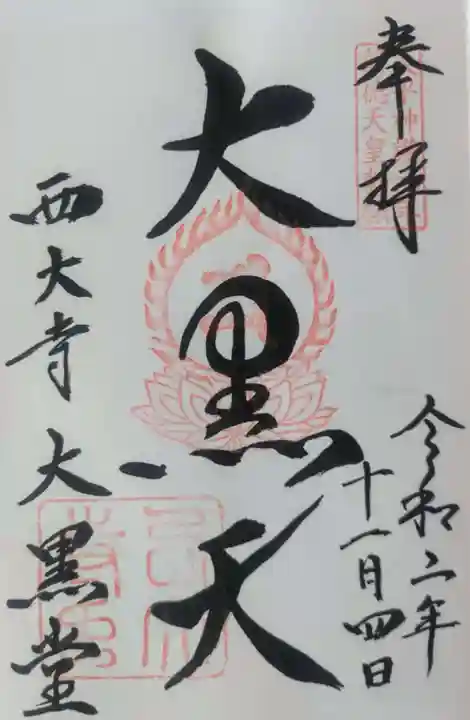 奉拝
令和二年
十一月四日
大黒天
西大寺 大黒堂